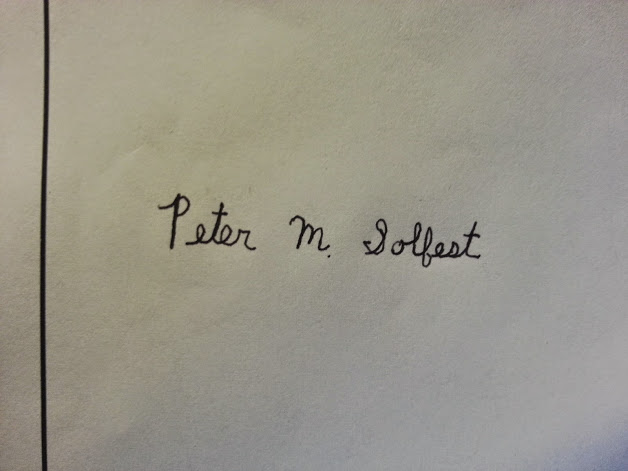 Peter M. Solfest